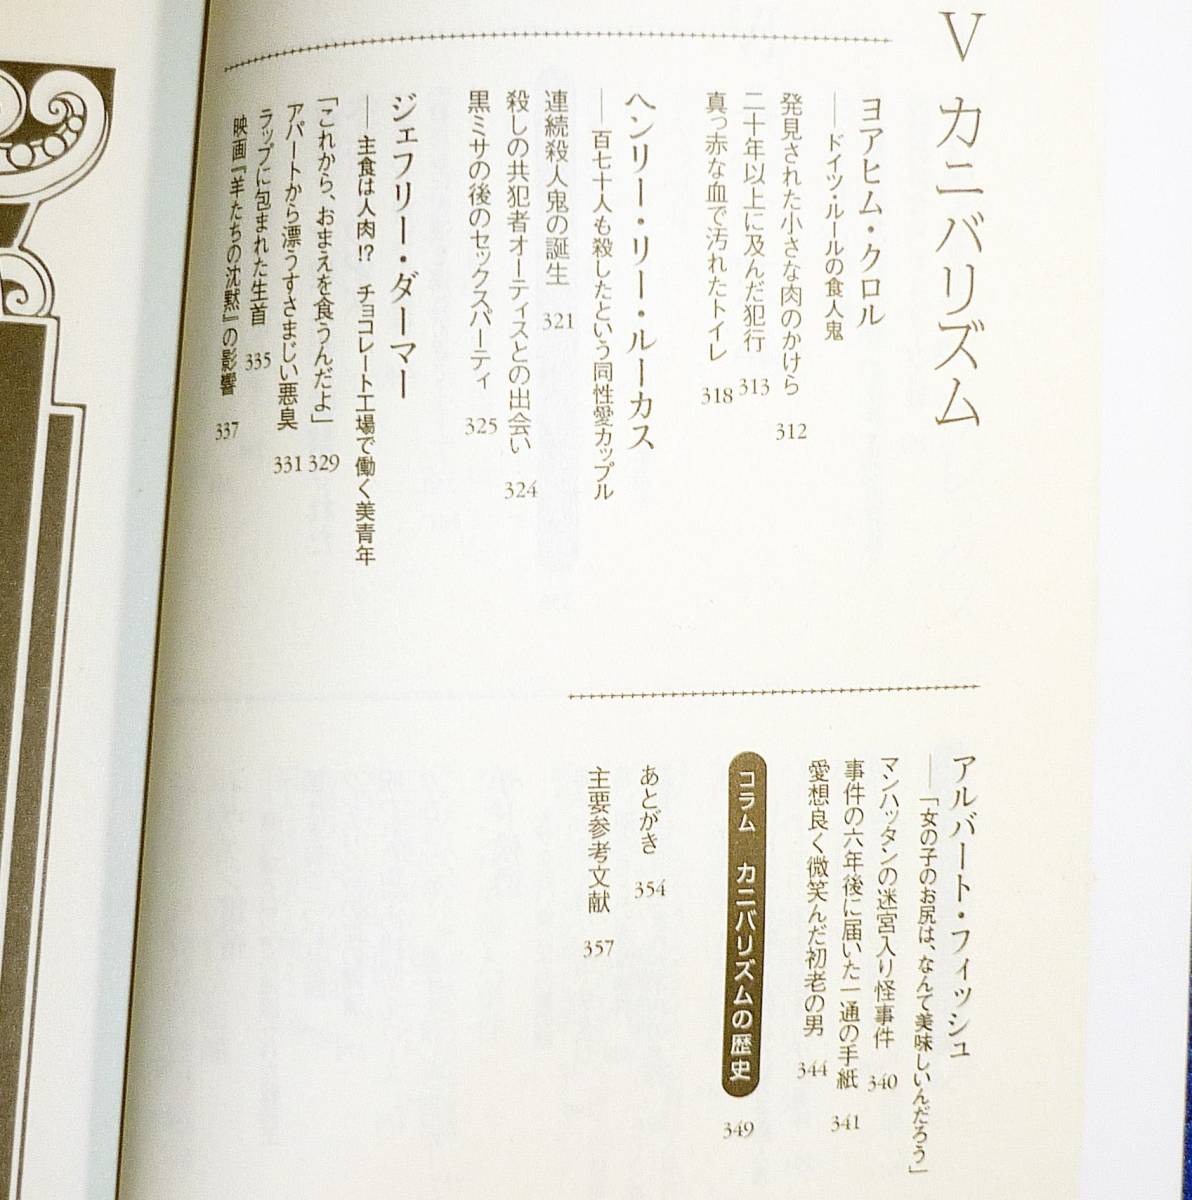 V カニバリズム
ヨアヒム・クロル
――ドイツ・ルールの食人鬼
発見された小さな肉のかけら 312
二十年以上に及んだ犯行 313
真っ赤な血で汚れたトイレ 318
ヘンリー・リー・ルーカス
――百七十人も殺したという同性愛カップル
連続殺人鬼の誕生 321
殺しの共犯者オーティスとの出会い 324
黒ミサの後のセックスパーティ 325
ジェフリー・ダーマー
――主食は人肉!? チョコレート工場で働く美青年
「これから、おまえを食うんだよ」 329
アパートから漂うすさまじい悪臭 331
ラップに包まれた生首 335
映画『羊たちの沈黙』の影響 337
アルバート・フィッシュ
――「女の子のお尻は、なんて美味しいんだろう」
マンハッタンの迷宮入り怪事件 340
事件の六年後に届いた一通の手紙 341
愛想良く微笑んだ初老の男 344
コラム カニバリズムの歴史 349
あとがき 354
主要参考文献 357